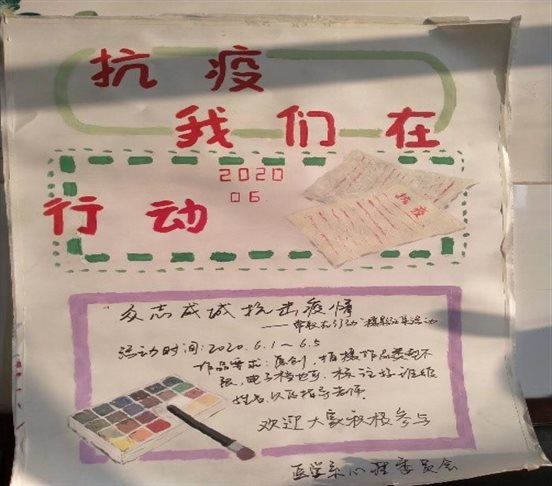 抗疫
我们在
2020
06
抗疫
行动
众志成城抗击疫情
活动时间:2020.6.1~6.5
作品要求:原创,拍摄作品类型不
限,电子档也可,标注好班级
姓名,以及指导老师。
欢迎大家积极参与
医学系心理委员会